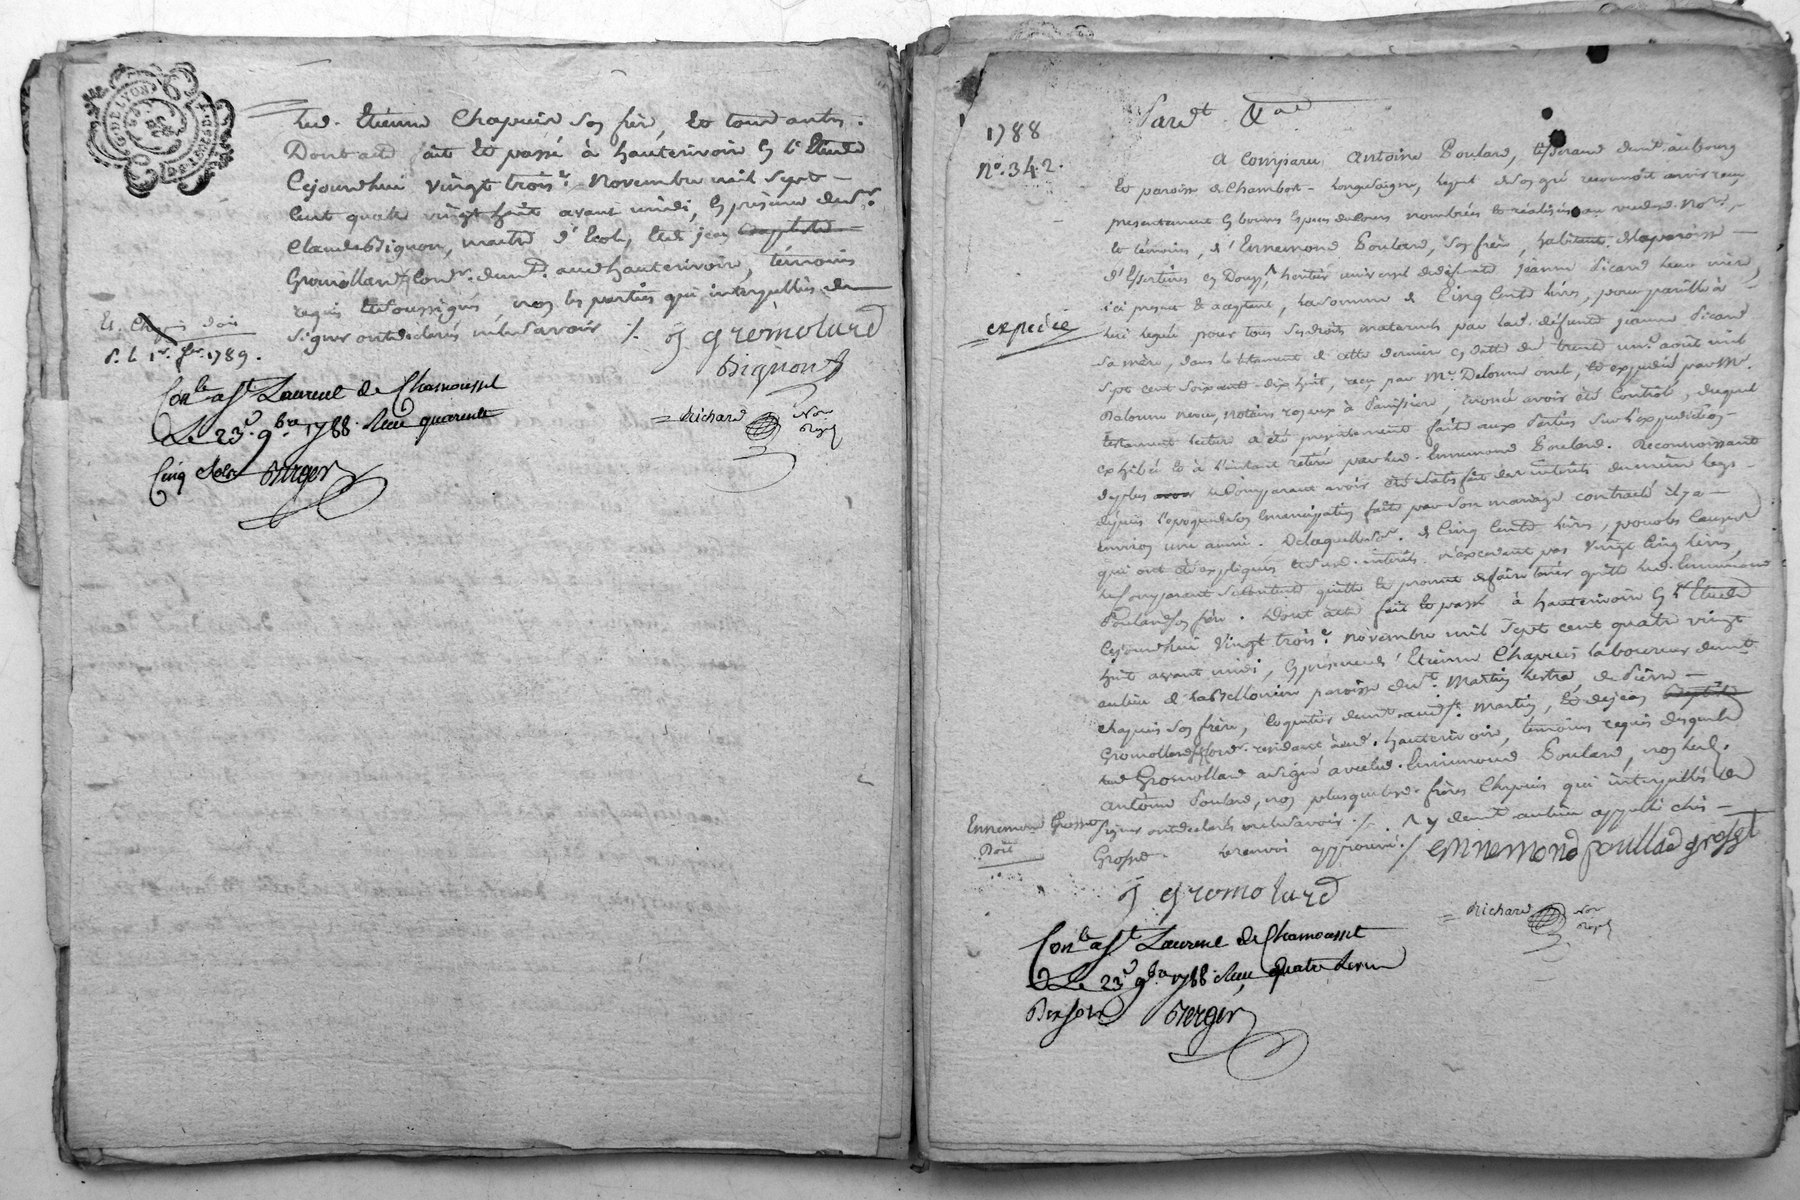 G. DE LYON
led. Etienne Chapuis son frère, et tous autres.
Dont acte fait et passé à hauterivoire en l'Etude
Cejourdhui vingt trois.e Novembre mil sept
Cent quatre vingt huit avant midi, en présence de S.r
Claude Bignon, maitre d'Ecole, et de jean
Gromollard demt. aud hauterivoire, témoins
requis et soussignés non les parties qui interpellées de
signer ont déclarés ne le savoir ./.
j gromolard
Bignon
Et. Chapuis doit
d. l. 1789.
Con.le a St. Laurent de Chamousset
Le 23.e 9.bre 1788. Recu quarente
Cinq sols Berger
Richard No.re Royal
1788
N.o 342.
expediée
A Comparu Antoine Poulard, demt. au bourg
et paroisse de Chambost-Longesaigne, lequel de son gré reconnoît avoir recu
présentement en bonnes espèces de cours nombrées et réalisées au vu de nd. No.re
et témoins, d'Ennemond Poulard, son frère, habitant de la paroisse
d'Essertines en Donzy, héritier universel de défunte jeanne Picard leur mère,
ici présent et acceptant, la somme de Cinq Cents livres, pour pareille à
lui leguée pour tous ses droits maternels par lad. défunte jeanne Picard
sa mère, dans le testament de cette dernière en datte du trente un.e août mil
sept cent soixante-dix huit, reçu par M.e Delorme oncle, et expédié par M.e
Delorme neveu, notaires royaux à Panissière, énoncé avoir été Controlé, duquel
testament lecture a été présentement faite aux Parties sur l'expédition
exhibée et à l'instant retirée par led. Ennemond Poulard. Reconnoissant
de plus le Comparant avoir été satisfait des intérêts du même legs
depuis l'epoque de son Emancipation faite par son mariage contracté il y a
environ une année. De laquelle so.e de Cinq Cents livres, pour les causes
qui ont été expliquées et desd. intérêts n'excédant pas vingt Cinq livres,
le Comparant se Contente quitte et promet de faire tenir quitte led. Ennemond
Poulard son frère. Dont acte fait et passé à hauterivoire en l'Etude
Cejourdhui vingt trois.e novembre mil sept cent quatre vingt
huit avant midi, en présence d'Etienne Chapuis laboureur demt.
au lieu de paroisse de St. Martin Lestra, de Pierre
Chapuis son frère, demt. aud. St. Martin, et de jean
Gromollard résidant aud. hauterivoire, témoins requis desquels
led Gromollard a signé avec led. Ennemond Poulard, non led.
Antoine Poulard, non plus que lesd. frères Chapuis qui interpellés de
signer ont déclarés ne le savoir ./. y demt. au lieu appellé chés
Grosse. le renvoi approuvé ./. Ennemond poullad gross
Ennemond Grosse
Doit
j gromolard
Richard No.re Royal
Con.le a St. Laurent de Chamousset
Le 23.e 9.bre 1788 Recu quatre livres
Dix sols Berger